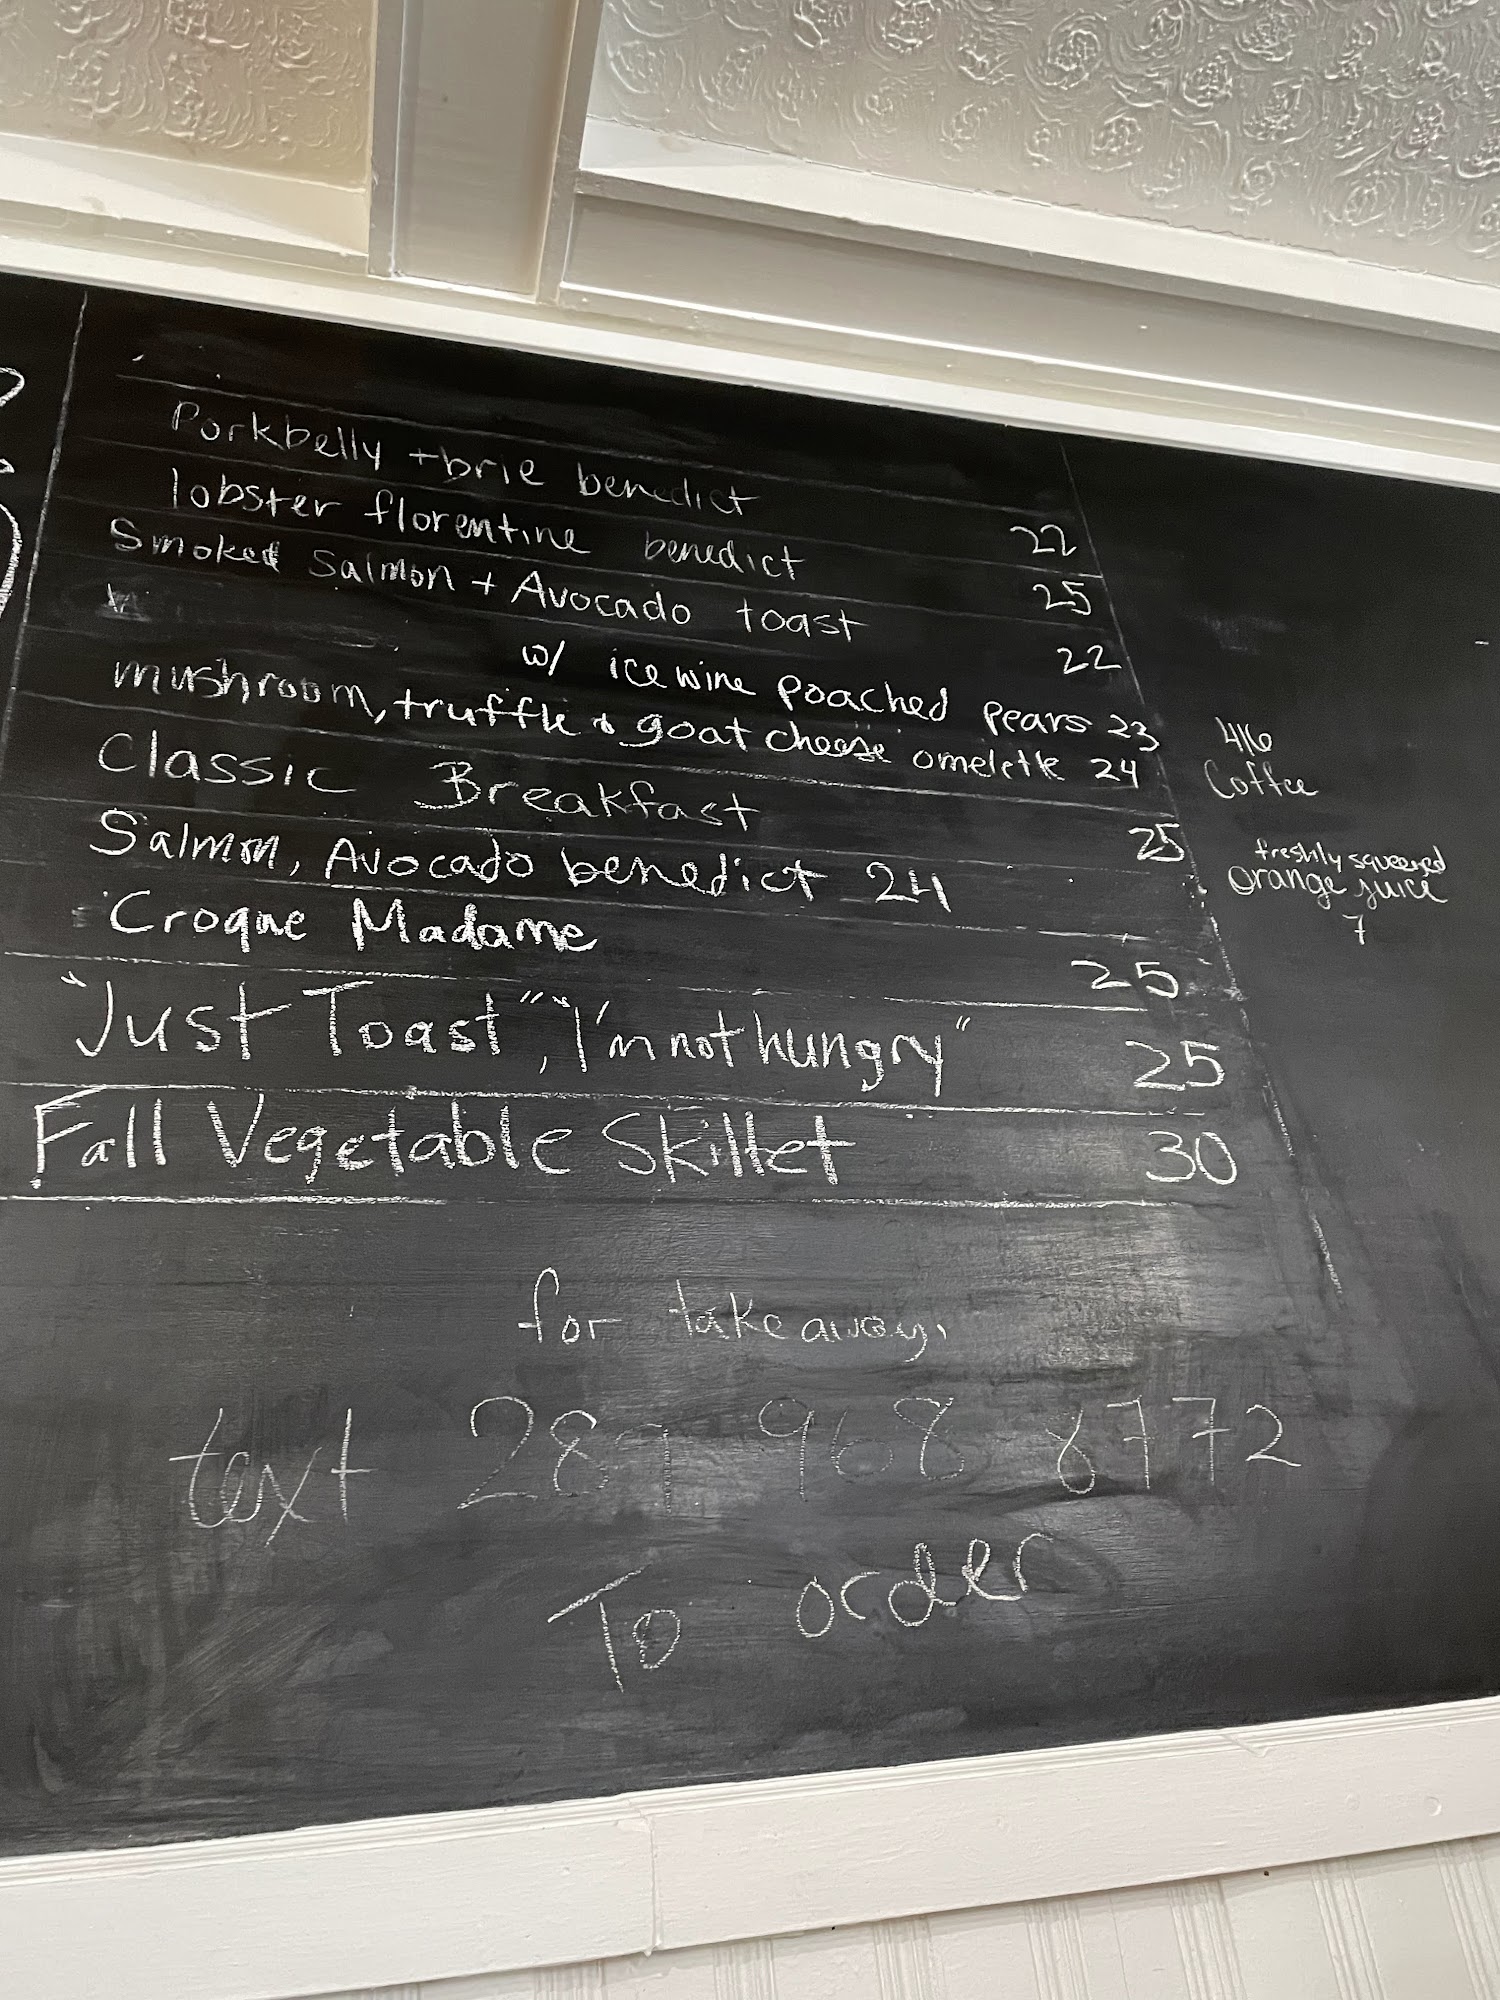 Porkbelly + brie benedict 22
lobster florentine benedict 25
Smoked Salmon + Avocado toast 22
w/ ice wine poached pears 23
mushroom, truffle & goat cheese omelette 24
Classic Breakfast 25
Salmon, Avocado benedict 24
Croque Madame 25
"Just Toast", "I'm not hungry" 25
Fall Vegetable Skillet 30
4/6
Coffee
freshly squeezed
orange juice
7
for take away,
text 289 968 8772
To order